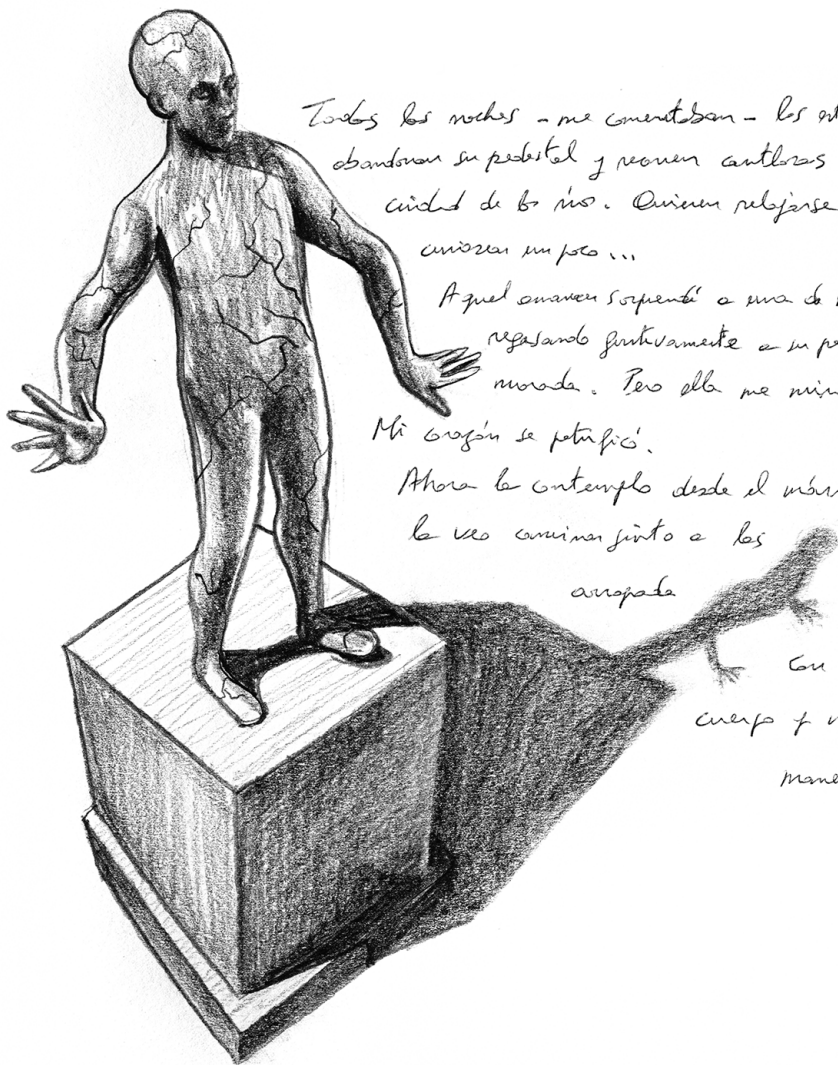 Todas las noches - me comentaban - las est
abandonan su pedestal y recorren cautelosas
ciudad de los Quieren relajarse
curiosear un poco ...
Aquel amanecer sorprendí a una de
regresando furtivamente a su pe
morada. Pero ella me mir
Mi corazón se petrificó.
Ahora la contemplo desde el már
la veo caminar junto a los
arropada
Con
cuerpo y v
mane